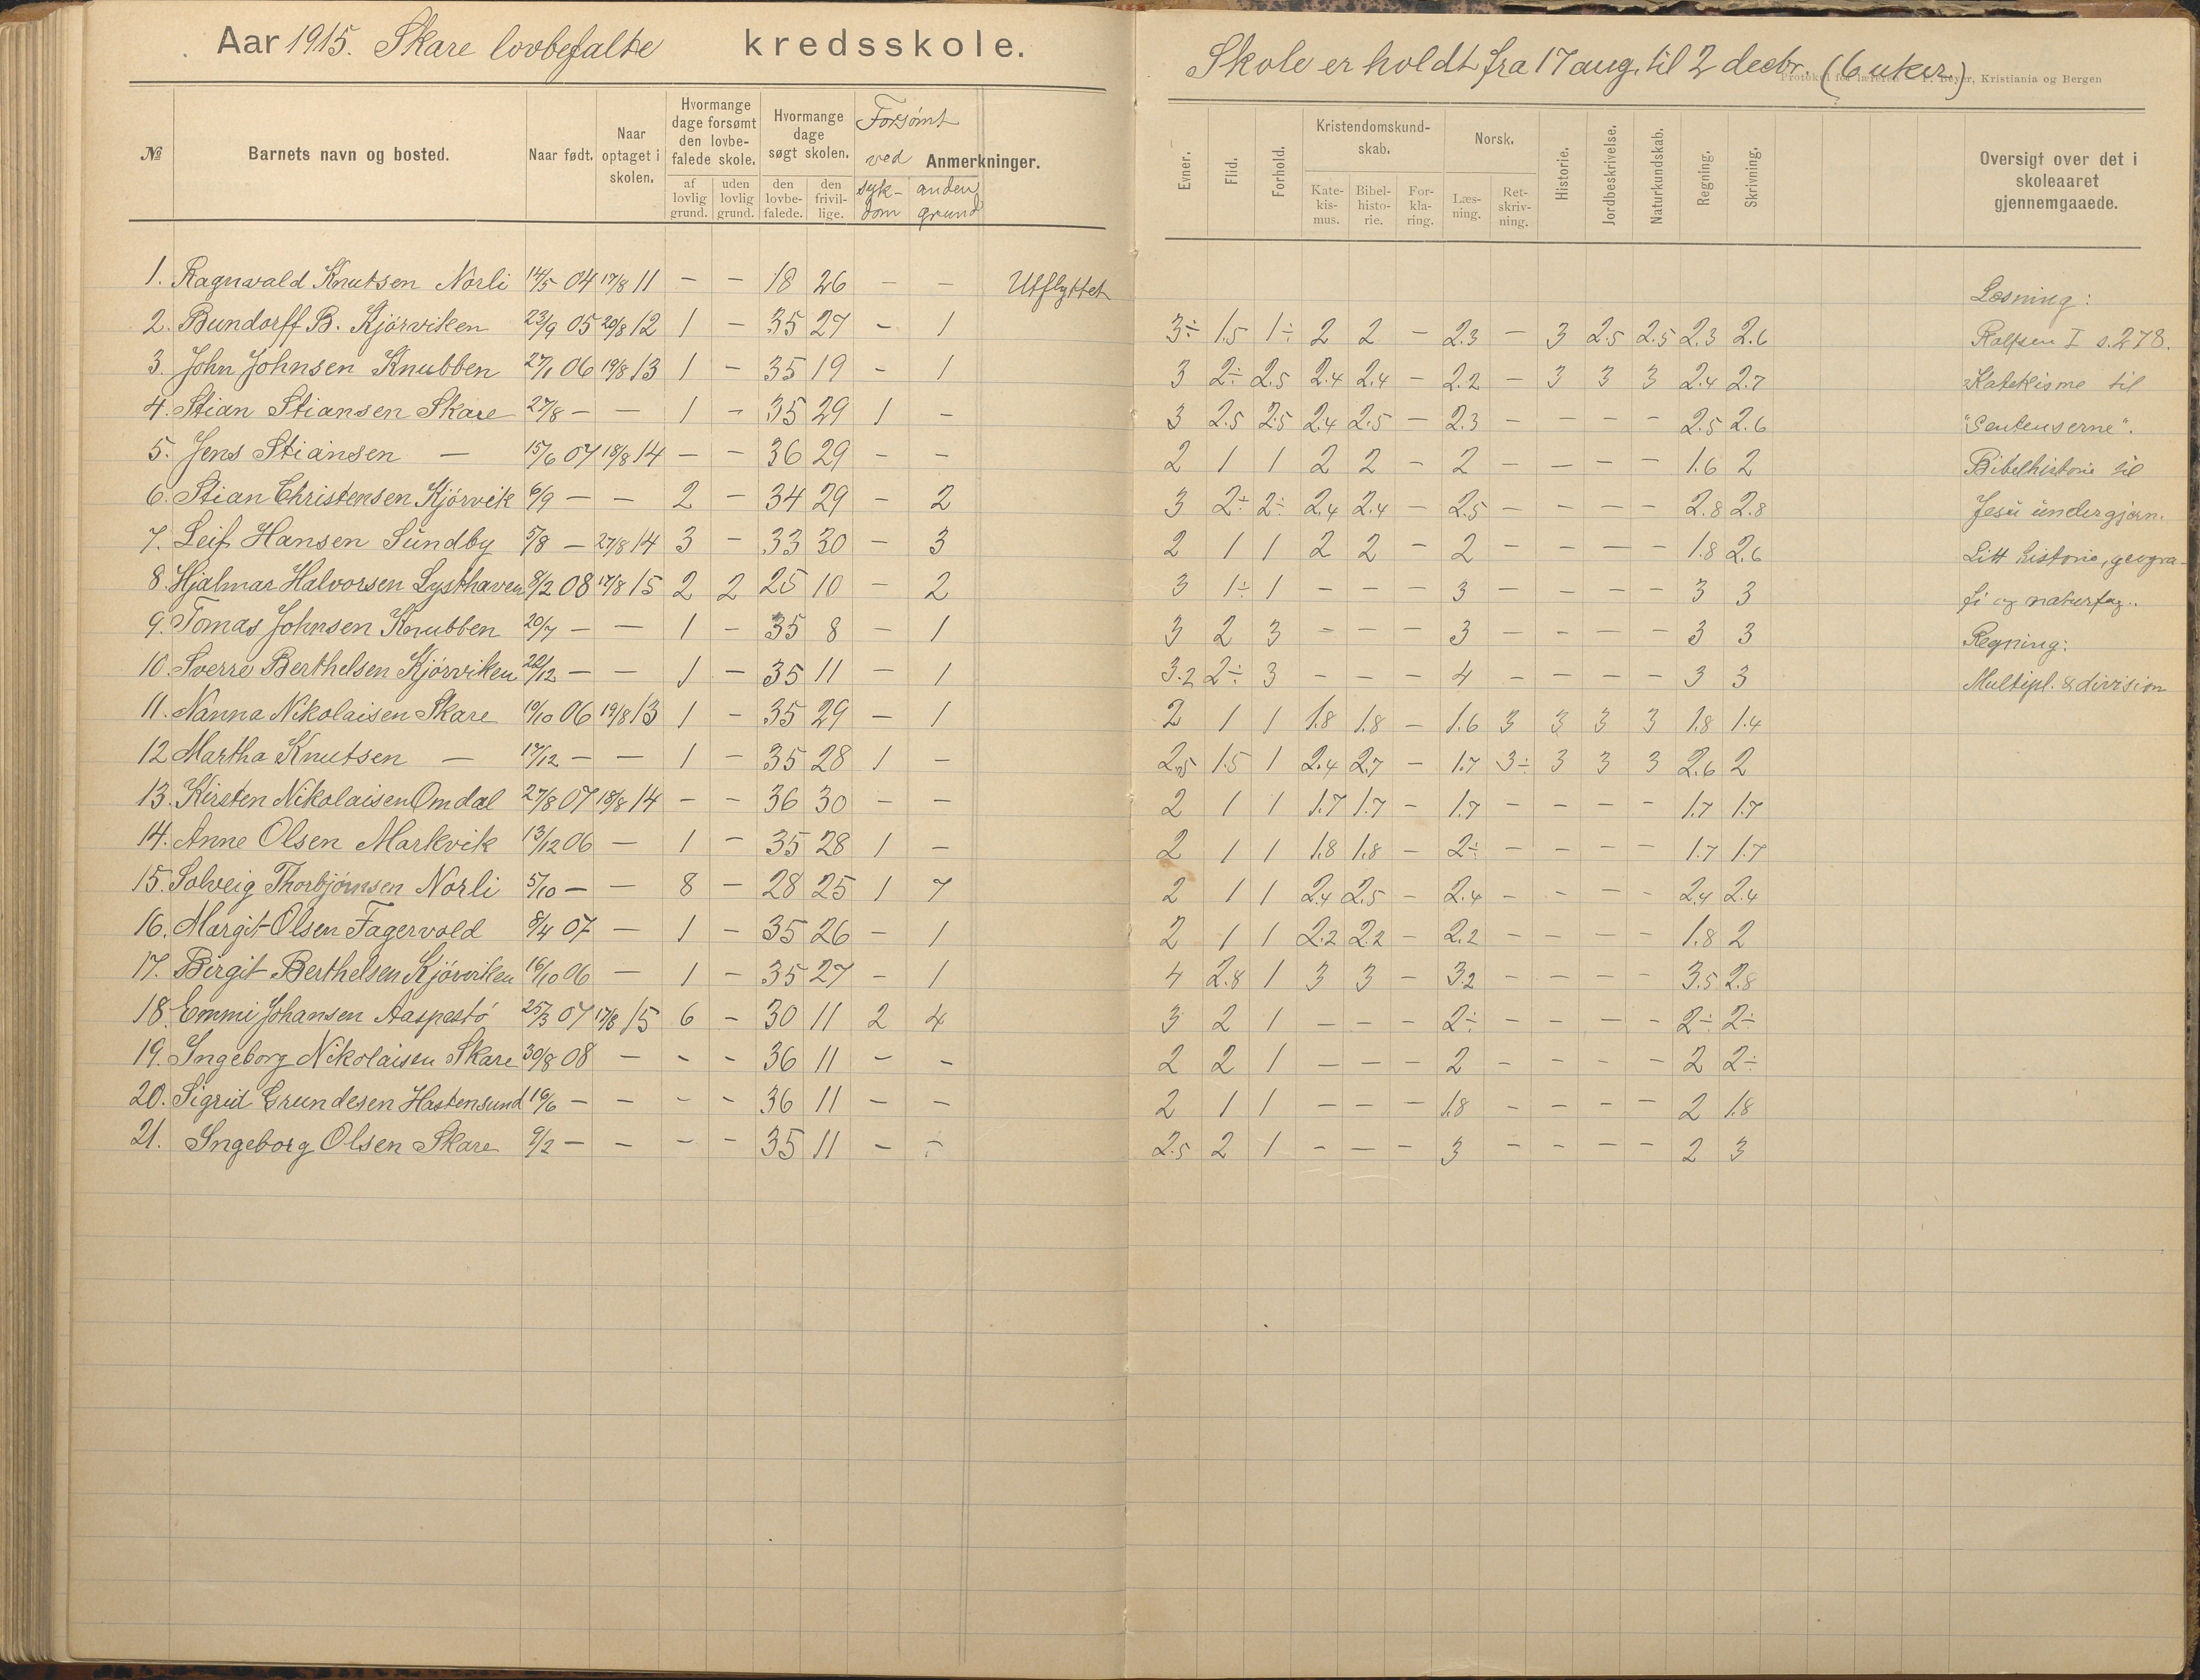 Aar 1915. Skare lovbefalte kredsskole.
№ Barnets navn og bosted. Naar født. Naar optaget i skolen. Hvormange dage forsømt den lovbefalede skole. af lovlig grund. uden lovlig grund. Hvormange dage søgt skolen. den lovbefalede. den frivillige. Forsømt ved sykdom anden grund Anmerkninger.
1. Ragnvald Knutsen Norli 14/5 04 17/8 11 – – 18 26 – – Utflyttet
2. Bundorff B. Kjörviken 23/9 05 20/8 12 1 – 35 27 – 1
3. John Johnsen Knubben 27/1 06 19/8 13 1 – 35 19 – 1
4. Stian Stiansen Skare 27/8 – – 1 – 35 29 1 –
5. Jens Stiansen – 15/6 07 18/8 14 – – 36 29 – –
6. Stian Christensen Kjörvik 6/9 – – 2 – 34 29 – 2
7. Leif Hansen Sundby 5/8 – 27/8 14 3 – 33 30 – 3
8. Hjalmar Halvorsen Lysthaven 8/2 08 17/8 15 2 2 25 10 – 2
9. Tomas Johnsen Knubben 20/7 – – 1 – 35 8 – 1
10. Sverre Berthelsen Kjörviken 22/12 – – 1 – 35 11 – 1
11. Nanna Nikolaisen Skare 19/10 06 19/8 13 1 – 35 29 – 1
12 Martha Knutsen – 17/12 – – 1 – 35 28 1 –
13. Kirsten Nikolaisen Omdal 27/8 07 18/8 14 – – 36 30 – –
14. Anne Olsen Markvik 13/12 06 – 1 – 35 28 1 –
15. Solveig Thorbjörnsen Norli 5/10 – – 8 – 28 25 1 7
16. Margit Olsen Fagervold 8/4 07 – 1 – 35 26 – 1
17. Birgit Berthelsen Kjörviken 16/10 06 – 1 – 35 27 – 1
18. Emmi Johansen Aaspestö 25/3 07 17/8 15 6 – 30 11 2 4
19. Ingeborg Nikolaisen Skare 30/8 08 – – – 36 11 – –
20. Sigrid Grundesen Hastensund 16/6 – – – – 36 11 – –
21. Ingeborg Olsen Skare 9/2 – – – – 35 11 – –
Skole er holdt fra 17 aug. til 2 decbr. (6 uker)
Kristiania og Bergen
Evner. Flid. Forhold. Kristendomskundskab. Katekismus. Bibelhistorie. Forklaring. Norsk. Læsning. Retskrivning. Historie. Jordbeskrivelse. Naturkundskab. Regning. Skrivning. Oversigt over det i skoleaaret gjennemgaaede.
Læsning:
3÷ 1.5 1÷ 2 2 – 2.3 – 3 2.5 2.5 2.3 2.6 Rolfsen I s. 278.
3 2÷ 2.5 2.4 2.4 – 2.2 – 3 3 3 2.4 2.7 Katekisme til
3 2.5 2.5 2.4 2.5 – 2.3 – – – – 2.5 2.6 "Sentenserne".
2 1 1 2 2 – 2 – – – – 1.6 2 Bibelhistorie til
3 2÷ 2÷ 2.4 2.4 – 2.5 – – – – 2.8 2.8 Jesu undergjern.
2 1 1 2 2 – 2 – – – – 1.8 2.6 Litt historie, geogra-
3 1÷ 1 – – – 3 – – – – 3 3 fi og naturfag.
3 2 3 – – – 3 – – – – 3 3 Regning:
3.2 2÷ 3 – – – 4 – – – – 3 3 Multipl. & division
2 1 1 1.8 1.8 – 1.6 3 3 3 3 1.8 1.4
2.5 1.5 1 2.4 2.7 – 1.7 3÷ 3 3 3 2.6 2
2 1 1 1.7 1.7 – 1.7 – – – – 1.7 1.7
2 1 1 1.8 1.8 – 2÷ – – – – 1.7 1.7
2 1 1 2.4 2.5 – 2.4 – – – – 2.4 2.4
2 1 1 2.2 2.2 – 2.2 – – – – 1.8 2
4 2.8 1 3 3 – 3.2 – – – – 3.5 2.8
3 2 1 – – – 2÷ – – – – 2÷ 2÷
2 2 1 – – – 2 – – – – 2 2÷
2 1 1 – – – 1.8 – – – – 2 1.8
2.5 2 1 – – – 3 – – – – 2 3